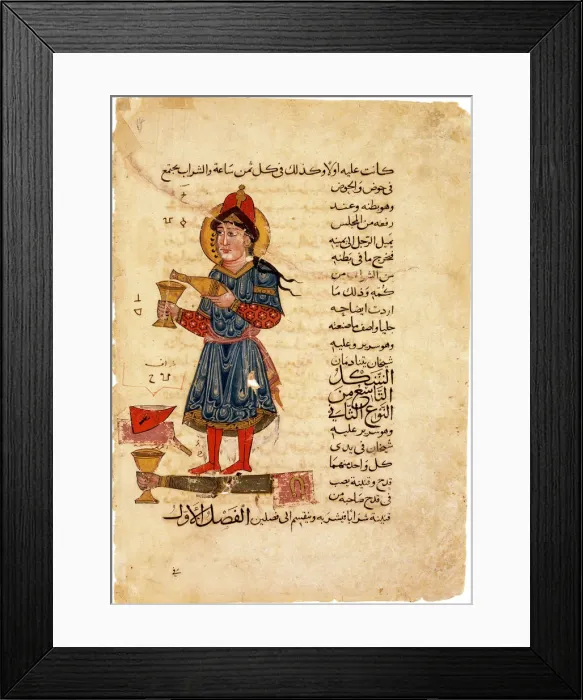 كانت عليه اولا وكذلك في كل ثمن ساعة والشراب يجتمع
في حوض والحوض
وهو بطنه وعند
رفعه من المجلس
يميل الرجل الى يمينه
فيخرج ما في بطنه
من الشراب من
كمه وذلك ما
اردت ايضاحه
جليا واصف ما صنعته
وهو سرير وعليه
شيخان يتنادمان
الشكل
التاسع من
النوع الثاني
وهو سرير عليه
شيخان في يدى
كل واحد منهما
قدح وقنينة يصب
في قدح صاحبه من
قنينة شرابا فيشربه وينقسم الى فصلين الفصل الاول